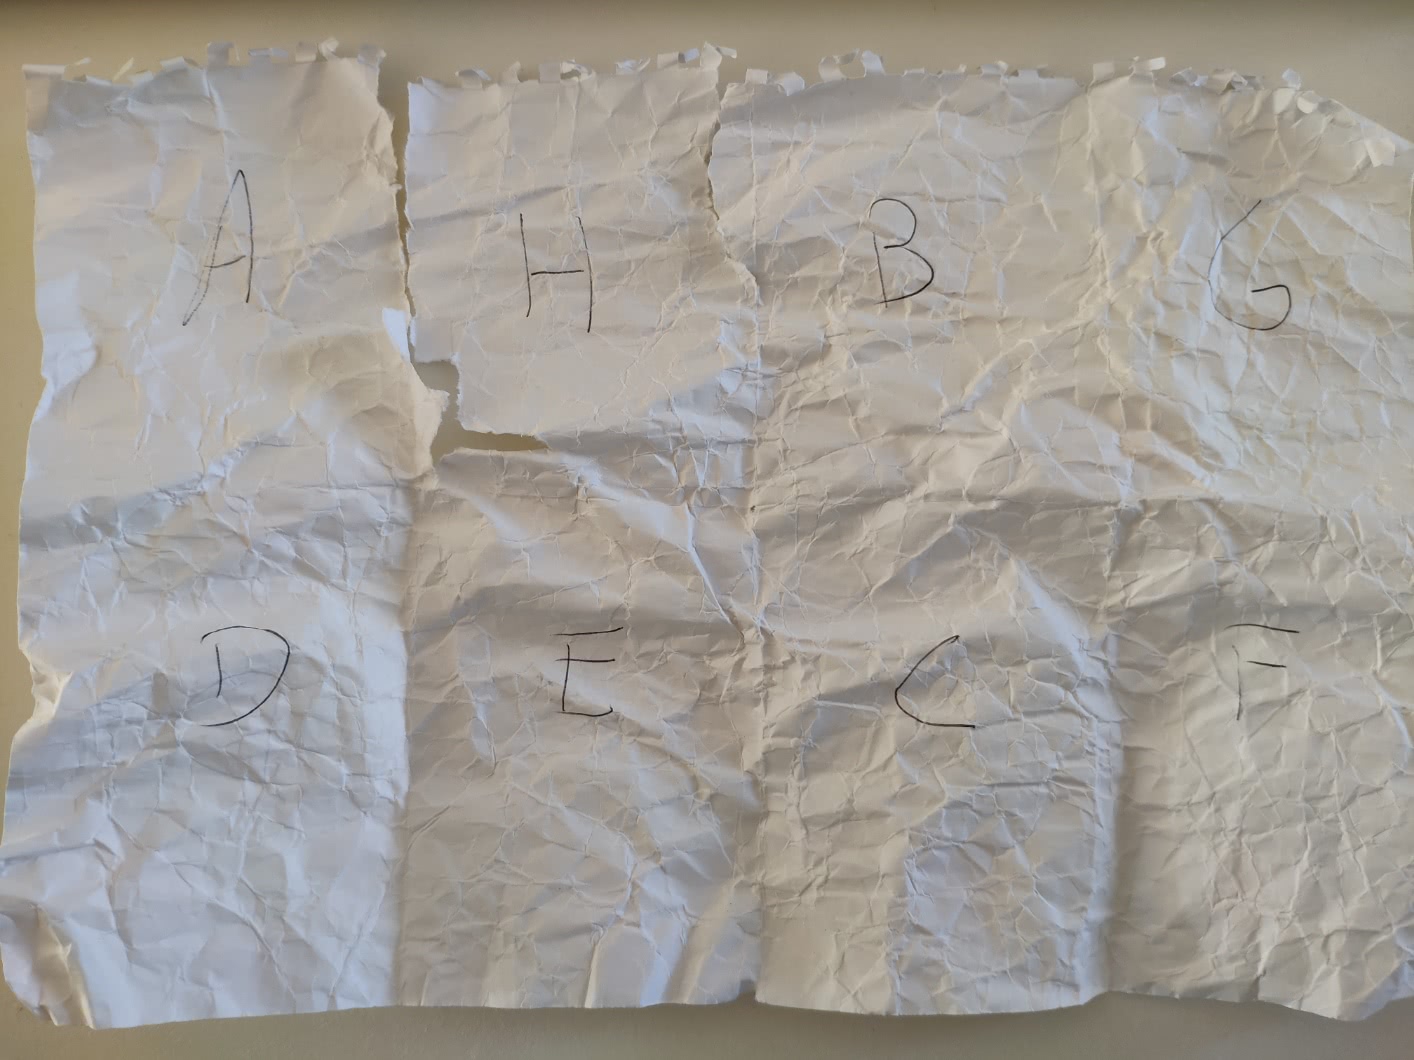 A H B G
D E C F